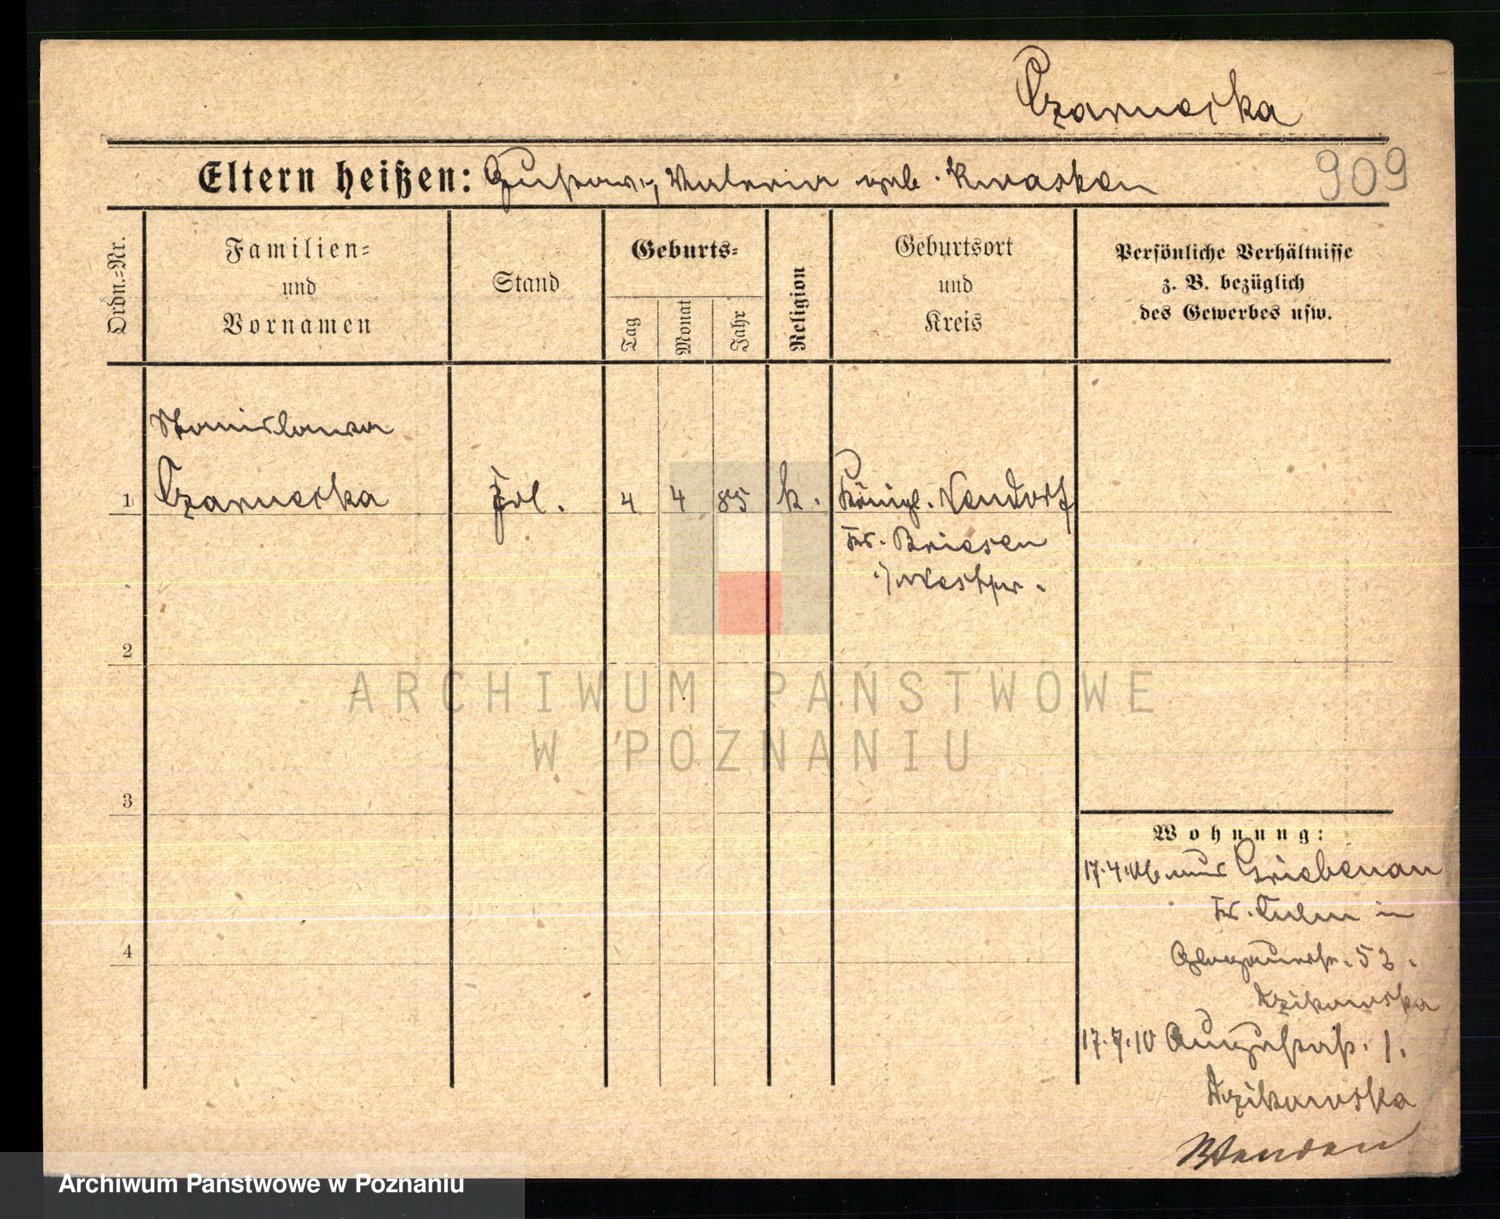 Czarnecka
Eltern heißen: Gustav, Valeria geb. Kwasken
909
Ordn.-Nr.
Familien-
und
Vornamen
Stand
Geburts-
Tag
Monat
Jahr
Religion
Geburtsort
und
Kreis
Persönliche Verhältnisse
z. B. bezüglich
des Gewerbes usw.
Stanislawa
1 Czarnecka Frl. 4 4 85 k. Königl. Neudorf
Kr. Briesen
i/Westpr.
2
ARCHIWUM PAŃSTWOWE
W POZNANIU
3
Wohnung:
17.4. aus Griebenau
Kr. Culm in
Glogauerstr. 53.
Dzikowska
4
17.7.10 Augustastr. 1.
Dzikowska
Archiwum Państwowe w Poznaniu